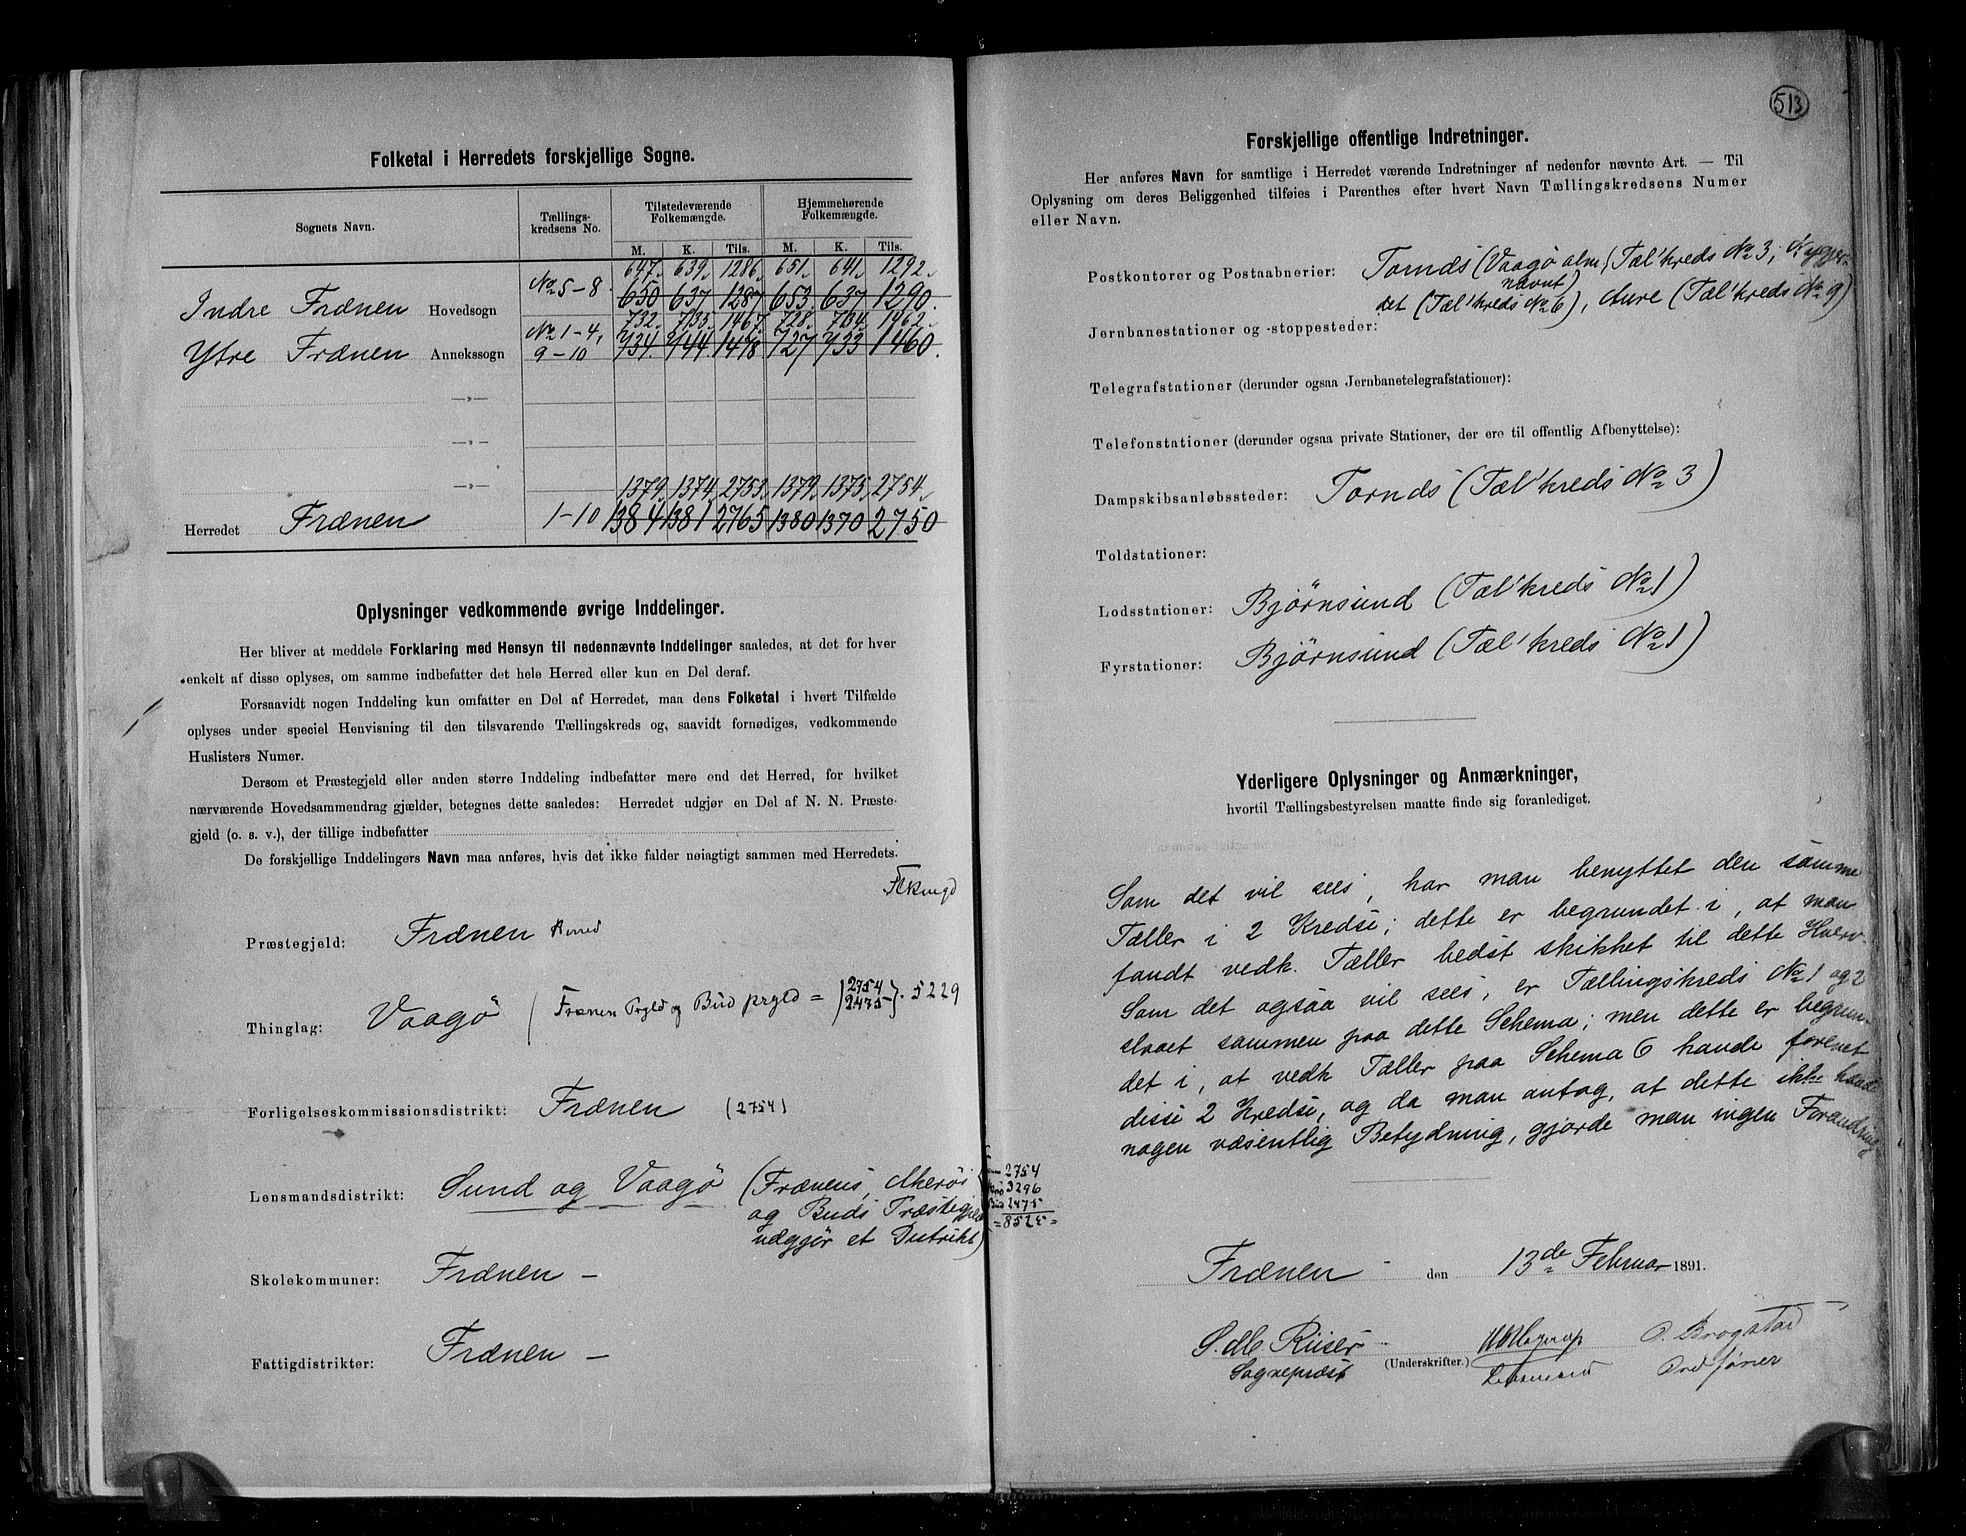 Folketal i Herredets forskjellige Sogne.
Sognets Navn.
Tællings-
kredsens No.
Tilstedeværende
Folkemængde.
Hjemmehørende
Folkemængde.
M. K. Tils. M. K. Tils.
647. 639. 1286. 651. 641. 1292.
Indre Frænen Hovedsogn No 5-8. 650 637 1287 653. 637 1290.
732. 735. 1467. 728. 734. 1462.
Ytre Frænen Annekssogn No 1-4, 9-10 734. 744 1478 727 733 1460.
—„—
—„—
—„—
1379. 1374. 2753. 1379. 1375. 2754.
Herredet Frænen 1-10 1384 1381 2765 1380 1370 2750
Oplysninger vedkommende øvrige Inddelinger.
Her bliver at meddele Forklaring med Hensyn til nedennævnte Inddelinger saaledes, at det for hver
enkelt af disse oplyses, om samme indbefatter det hele Herred eller kun en Del deraf.
Forsaavidt nogen Inddeling kun omfatter en Del af Herredet, maa dens Folketal i hvert Tilfælde
oplyses under speciel Henvisning til den tilsvarende Tællingskreds og, saavidt fornødiges, vedkommende
Huslisters Numer.
Dersom et Præstegjeld eller anden større Inddeling indbefatter mere end det Herred, for hvilket
nærværende Hovedsammendrag gjælder, betegnes dette saaledes: Herredet udgjør en Del af N. N. Præste-
gjeld (o. s. v.), der tillige indbefatter
De forskjellige Inddelingers Navn maa anføres, hvis det ikke falder nøiagtigt sammen med Herredets.
Præstegjeld: Frænen Herred
Thinglag: Vaagö (Frænen Prgld og Bud prgld = 2754 2475 ). 5229
Forligelseskommissionsdistrikt: Frænen (2754)
Lensmandsdistrikt: Sund og Vaagö (Frænens, Akerös
og Buds Præstegjeld
udggjør et Distrikt)
2754
3296
Bud 2475
= 8525 =
Skolekommuner: Frænen –
Fattigdistrikter: Frænen –
513
Forskjellige offentlige Indretninger.
Her anføres Navn for samtlige i Herredet værende Indretninger af nedenfor nævnte Art. — Til
Oplysning om deres Beliggenhed tilføies i Parenthes efter hvert Navn Tællingskredsens Numer
eller Navn.
Postkontorer og Postaabnerier: Tornæs (Vaagö alm. navnt) (Tæl'kreds No 3,
det (Tæl'kreds No 6), Aure (Tæl'kreds No 9)
Jernbanestationer og -stoppesteder:
Telegrafstationer (derunder ogsaa Jernbanetelegrafstationer):
Telefonstationer (derunder ogsaa private Stationer, der ere til offentlig Afbenyttelse):
Dampskibsanløbssteder: Tornæs (Tæl'kreds No 3)
Toldstationer:
Lodsstationer: Bjørnsund (Tæl'kreds No 1)
Fyrstationer: Bjørnsund (Tæl'kreds No 1)
Yderligere Oplysninger og Anmærkninger,
hvortil Tællingsbestyrelsen maatte finde sig foranlediget.
Som det vil sees, har man benyttet den samme
Tæller i 2 Kredse; dette er begrundet i, at man
fandt vedk. Tæller bedst skikket til dette Hverv.
Som det ogsaa vil sees, er Tællingskreds No 1 og 2
slaaet sammen paa dette Schema; men dette er begrun-
det i, at vedk Tæller paa Schema 6 havde forenet
disse 2 Kredse, og da man antog, at dette ikke havde
nogen væsentlig Betydning, gjorde man ingen Forandring
Frænen den 13de Februar 1891.
Riiser
Sogneprest
(Underskrifter.)
Lensmand
O. Brogstad
Ordfører